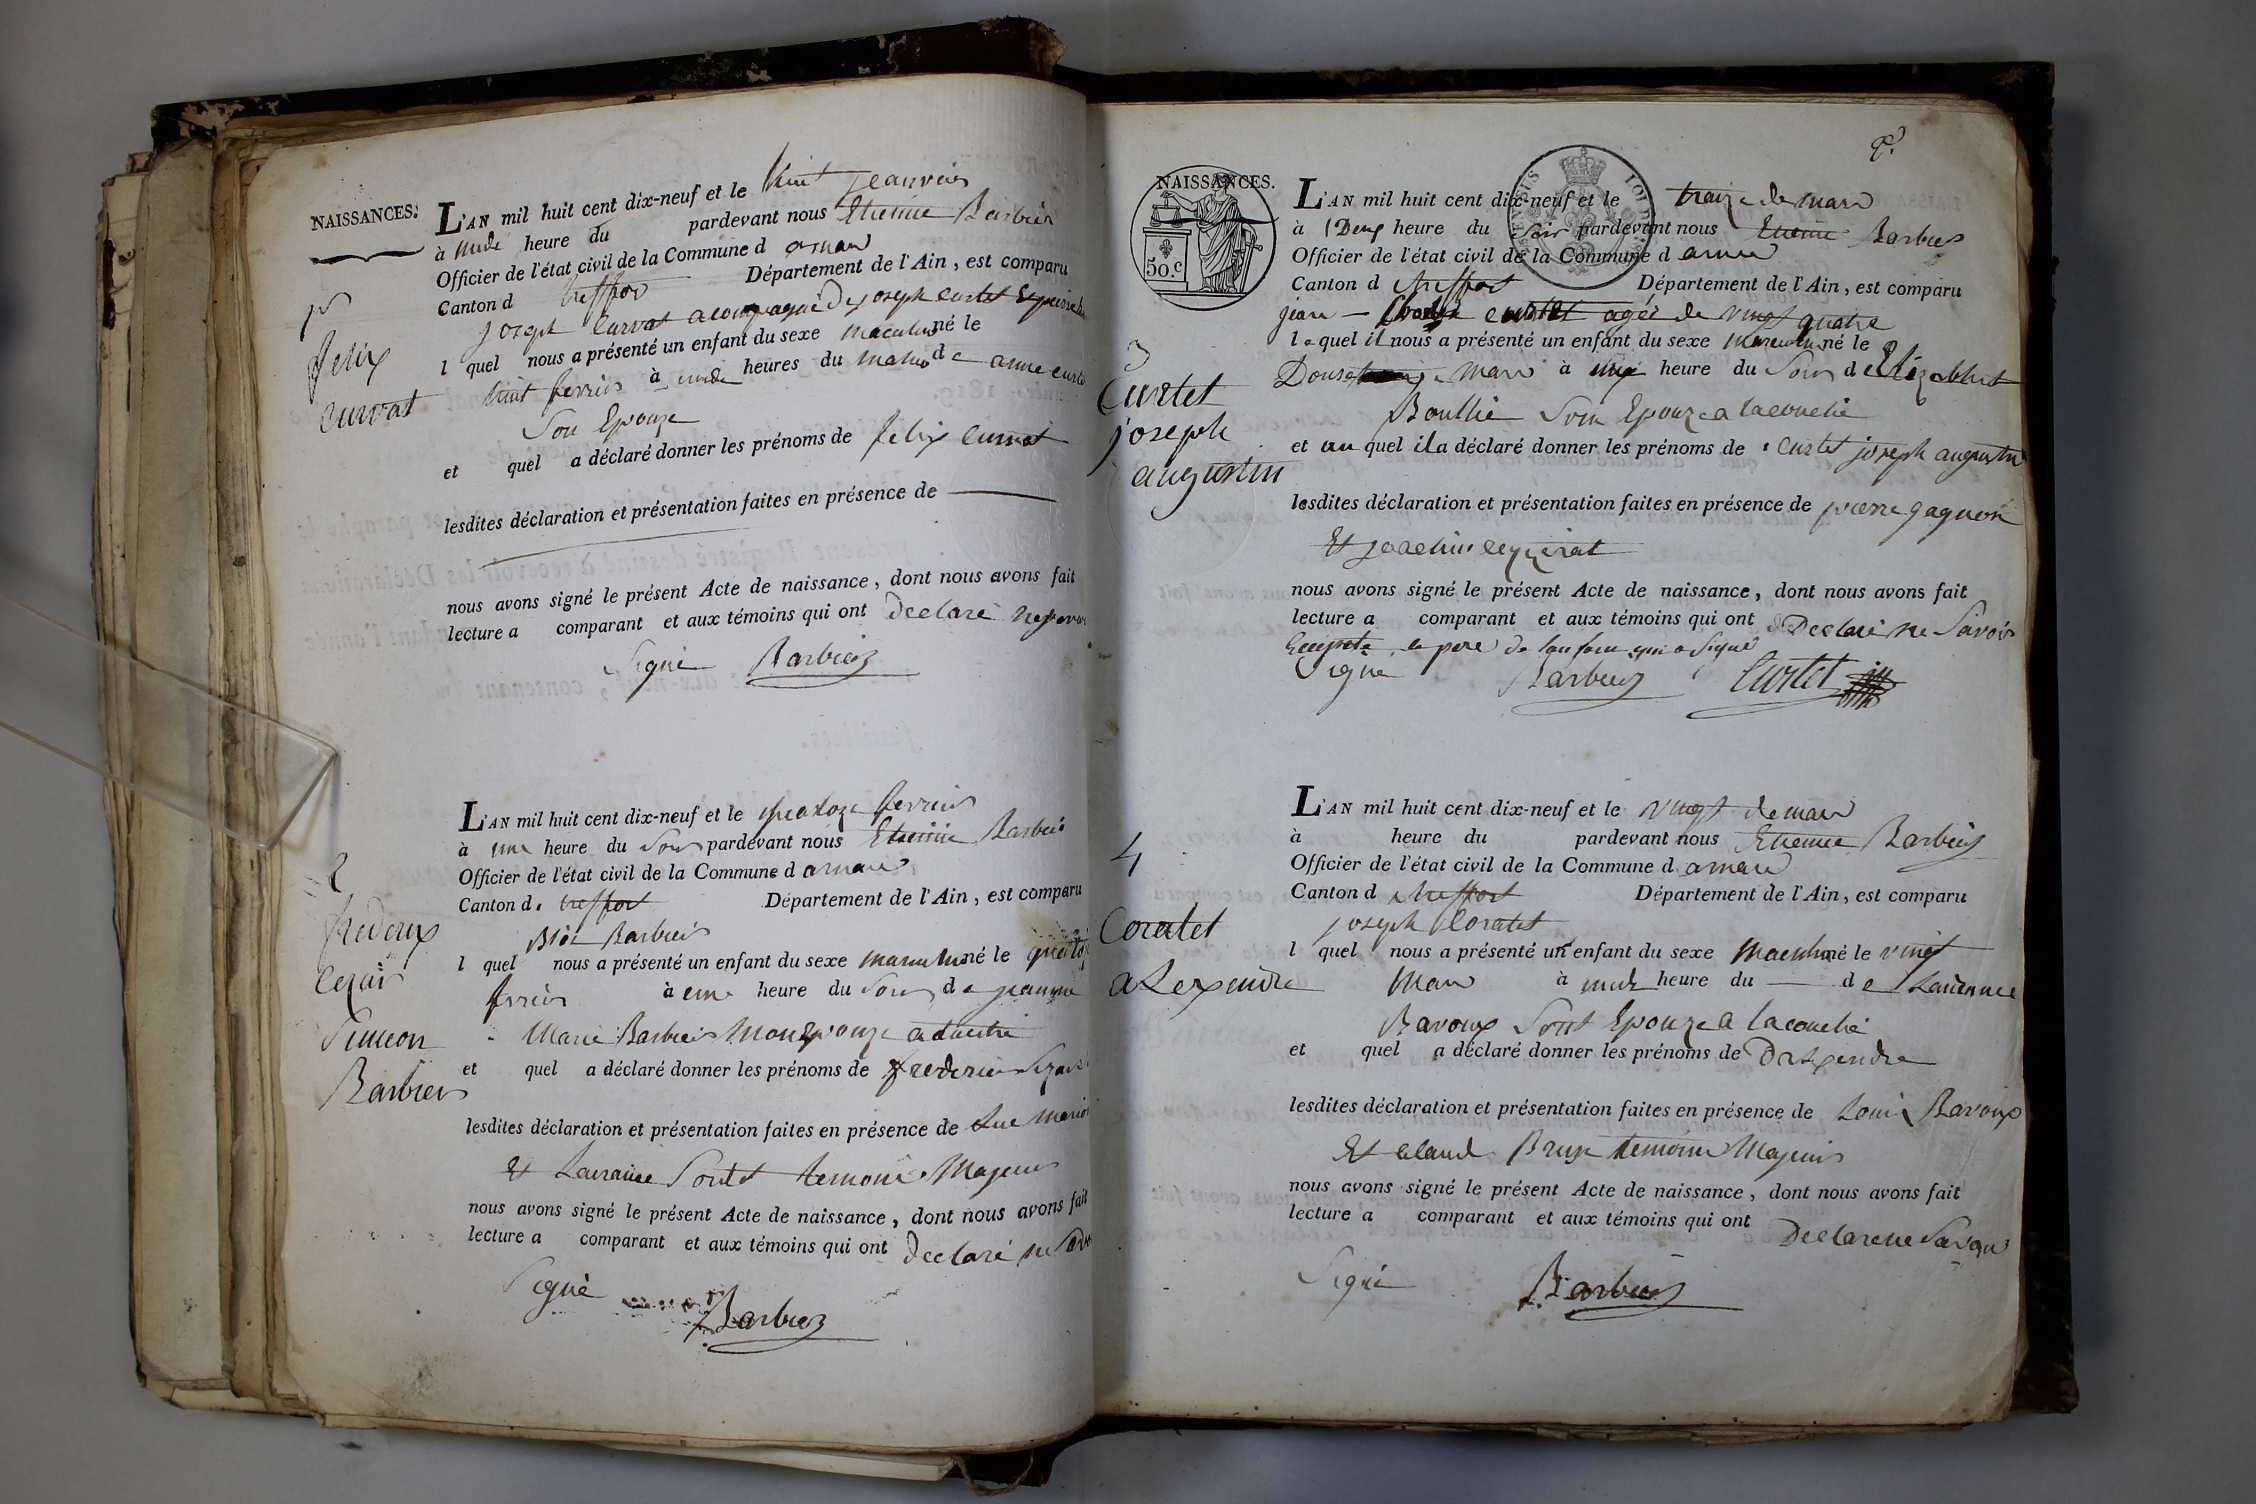 NAISSANCES.
L'AN mil huit cent dix-neuf et le vint jeanvier
à midi heure du pardevant nous Etienne Barbier
Officier de l'état civil de la Commune d arnan
Canton d treffor Département de l'Ain, est comparu
joseph Curvat acompagné De joseph Curtet
l quel nous a présenté un enfant du sexe maculin né le
vint ferrier à midi heures du matin d e anne
Son Epouze
et quel a déclaré donner les prénoms de felix Curvat
lesdites déclaration et présentation faites en présence de
nous avons signé le présent Acte de naissance, dont nous avons fait
lecture a comparant et aux témoins qui ont Declaré
Signé Barbier
1er
felix
Curvat
L'AN mil huit cent dix-neuf et le quatoze ferrier
à une heure du Soir pardevant nous Etienne Barbier
Officier de l'état civil de la Commune d arnan
Canton d. treffort Département de l'Ain, est comparu
Barbier
l quel nous a présenté un enfant du sexe masculin né le
ferrier à une heure du Soir d e jeanne
Marie Barbier Mon Epouze
et quel a déclaré donner les prénoms de frederic Sezar
lesdites déclaration et présentation faites en présence de
Et Laurance Soutet temoin Majeur
nous avons signé le présent Acte de naissance, dont nous avons fait
lecture a comparant et aux témoins qui ont Declaré ne
Signé Barbier
2
frederix
Cezar
Simeon
Barbier
2.
NAISSANCES.
50.c
L'AN mil huit cent dix-neuf et le traize de mars
à Deux heure du Soir pardevant nous Etienne Barbier
Officier de l'état civil de la Commune d arnan
Canton d treffort Département de l'Ain, est comparu
jean Curtet agée de vingt quatre
l e quel il nous a présenté un enfant du sexe masculin né le
Douse Mars à heure du Soir d Elizabhet
Boullie Son Epouze a lacouché
et au quel il a déclaré donner les prénoms de Curtet joseph augustin
lesdites déclaration et présentation faites en présence de pierre gagneon
Et joachin
nous avons signé le présent Acte de naissance, dont nous avons fait
lecture a comparant et aux témoins qui ont Declaré ne Savoir
Excepté le pere de lanfans qui a Signé
Signé Barbier Curtet
3
Curtet
joseph
augustin
L'AN mil huit cent dix-neuf et le vingt de mars
à heure du pardevant nous Etienne Barbier
Officier de l'état civil de la Commune d arnan
Canton d treffort Département de l'Ain, est comparu
joseph Coratet
l quel nous a présenté un enfant du sexe né le vingt
Mars à midi heure du d e
Bavoux Sont Epouze a lacouché
et quel a déclaré donner les prénoms de
lesdites déclaration et présentation faites en présence de Louis Bavoux
Et claud temoins Majeurs
nous avons signé le présent Acte de naissance, dont nous avons fait
lecture a comparant et aux témoins qui ont Declare ne Savoir
Signé Barbier
4
Coratet
alexendre